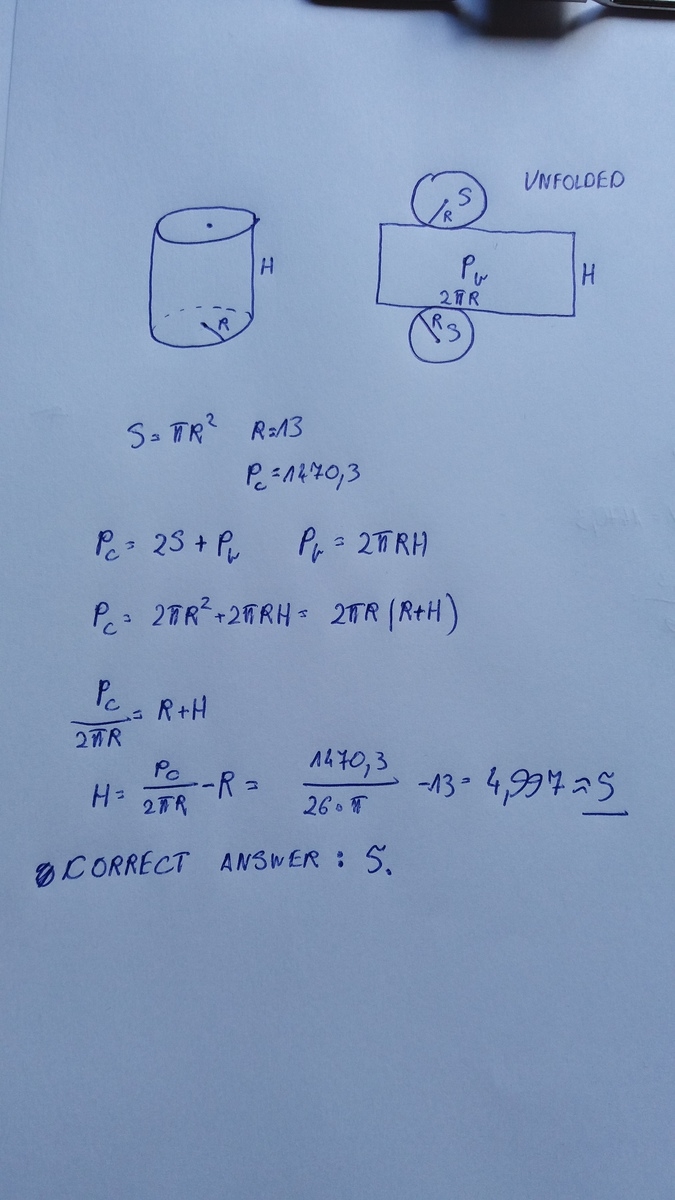 UNFOLDED
S
R
H
P_b
2πR
H
R
R S
S = πR² R=13
P_c = 1470,3
P_c = 2S + P_b P_b = 2πRH
P_c = 2πR² + 2πRH = 2πR (R+H)
P_c / 2πR = R+H
H = P_c / 2πR - R = 1470,3 / 26·π - 13 = 4,997 ≈ 5
CORRECT ANSWER : 5.